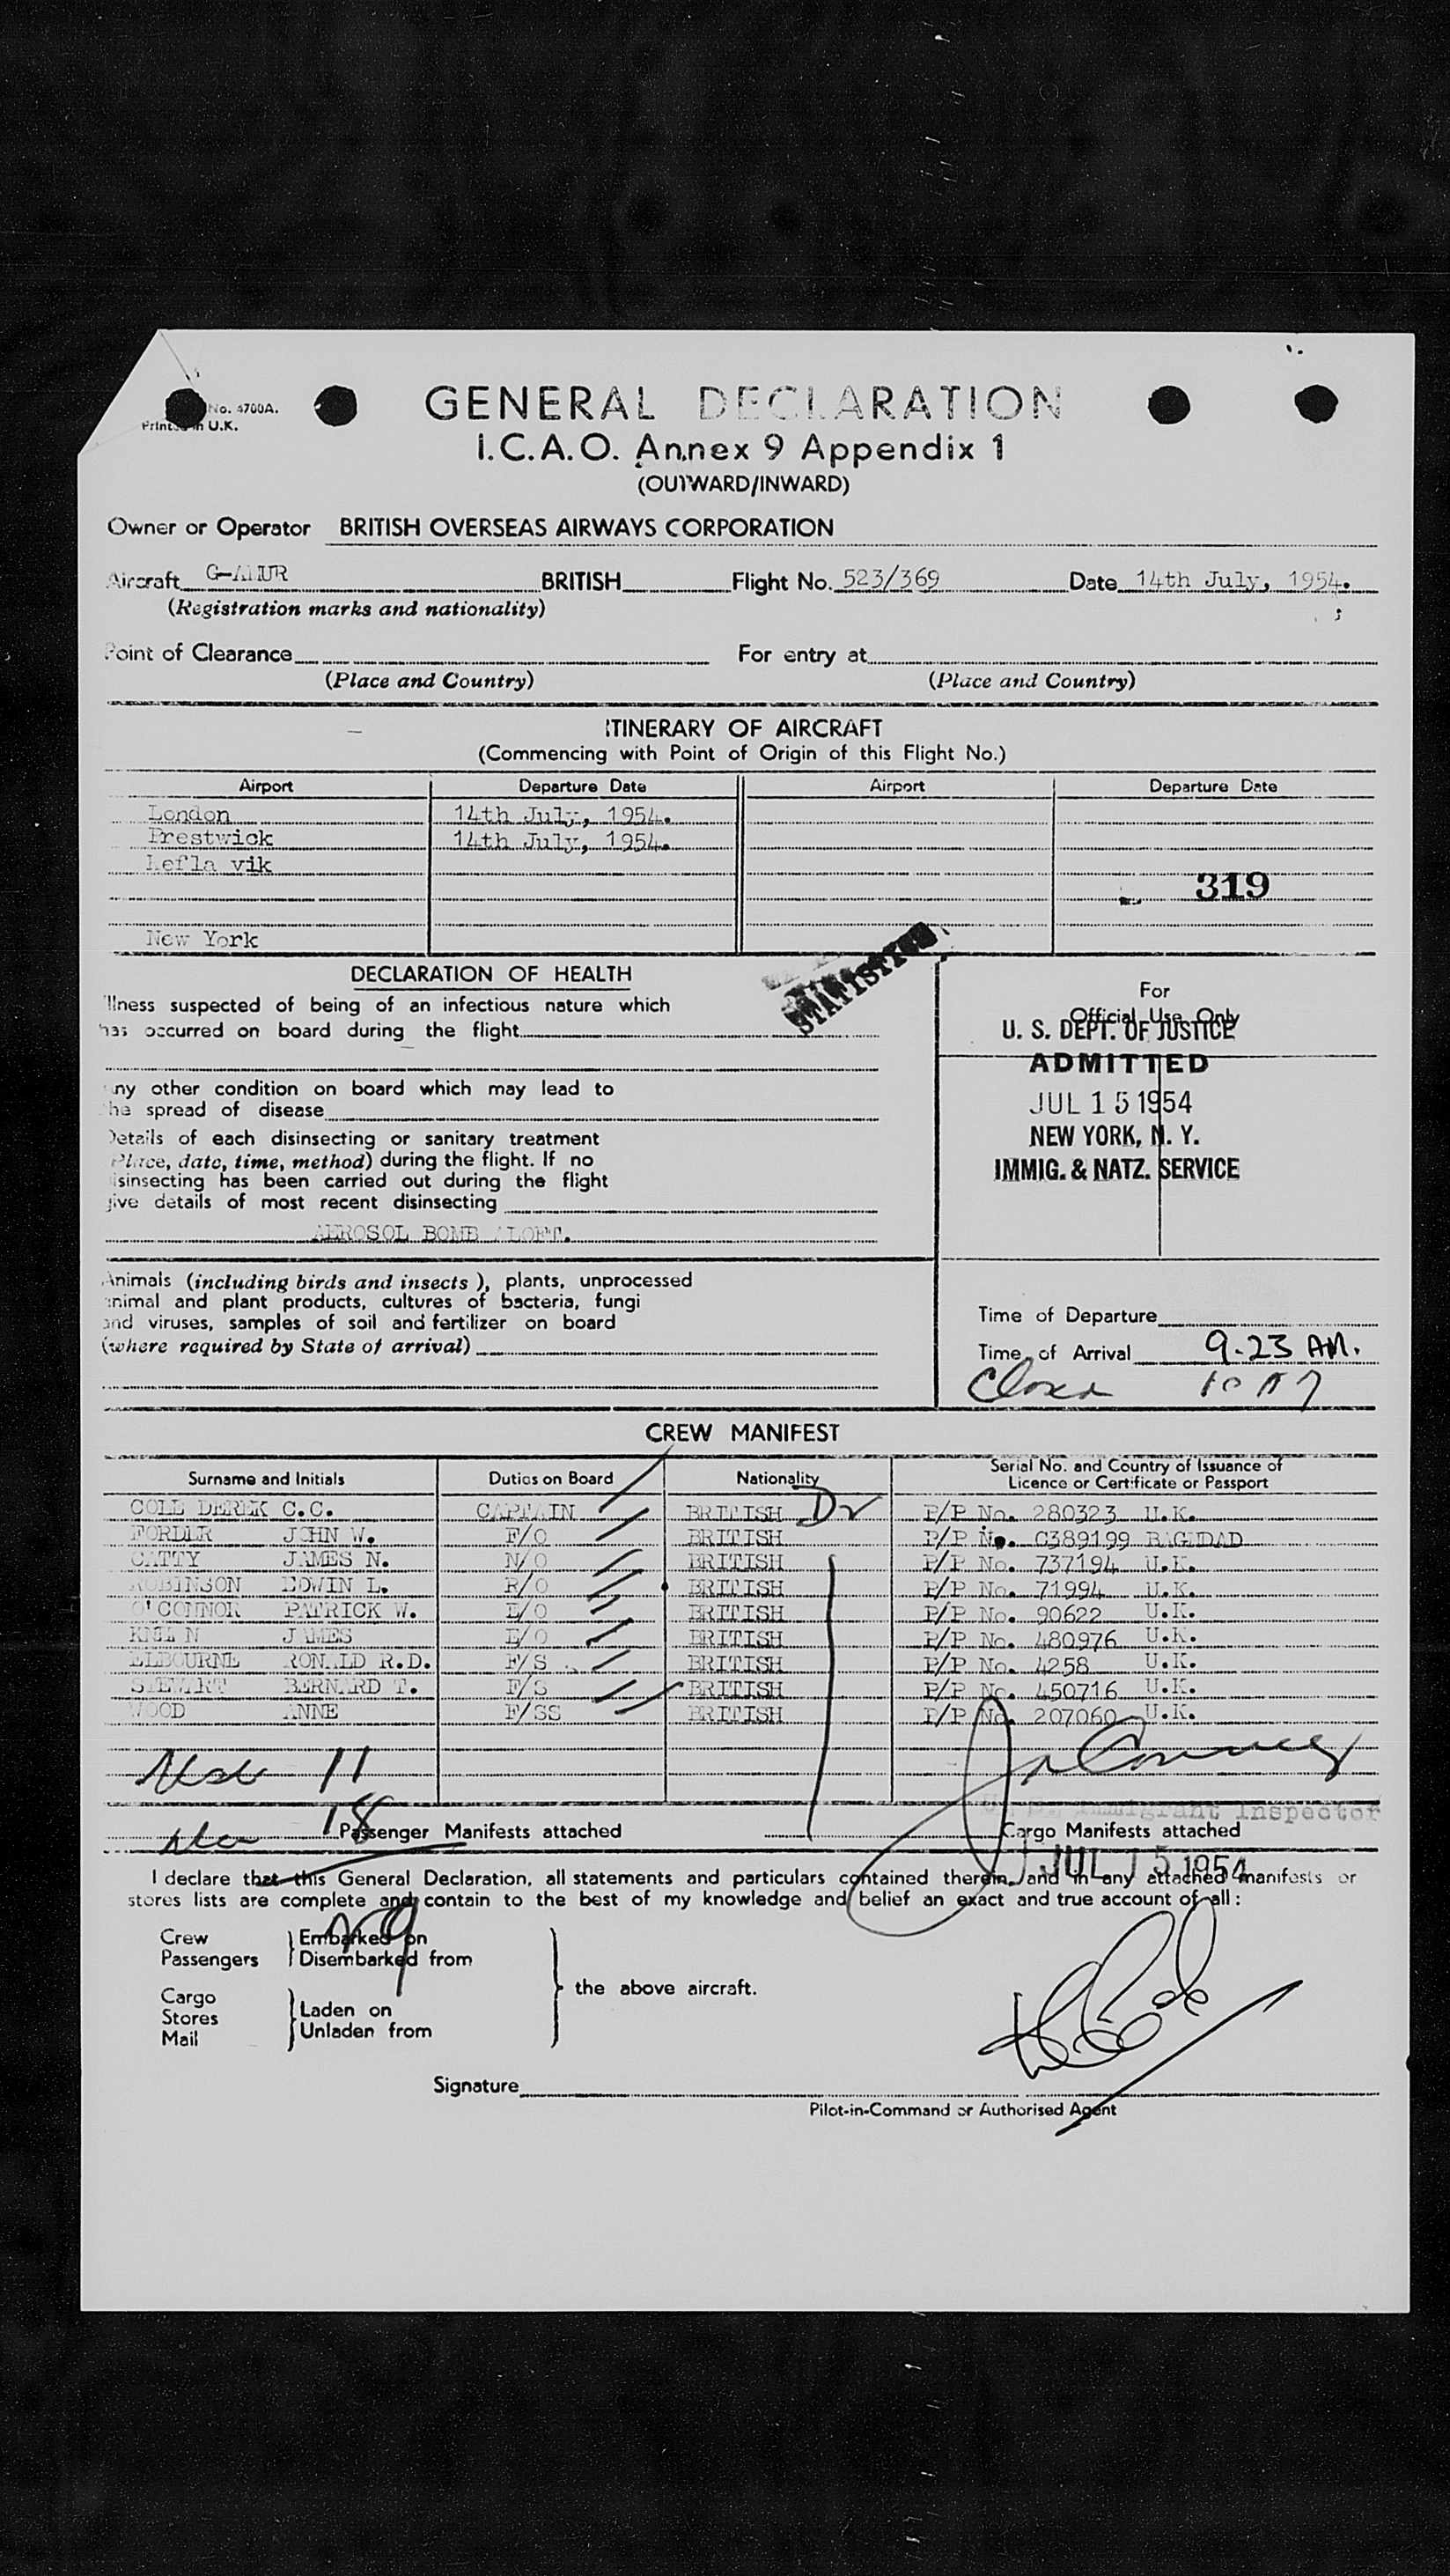 No. 4700A.
Printed in U.K.
GENERAL DECLARATION
I.C.A.O. Annex 9 Appendix 1
(OUTWARD/INWARD)
Owner or Operator BRITISH OVERSEAS AIRWAYS CORPORATION
Aircraft BRITISH Flight No. 523/369 Date 14th July, 1954.
(Registration marks and nationality)
Point of Clearance For entry at
(Place and Country) (Place and Country)
ITINERARY OF AIRCRAFT
(Commencing with Point of Origin of this Flight No.)
Airport Departure Date Airport Departure Date
London 14th July, 1954.
Prestwick 14th July, 1954.
Kefla vik
319
New York
STATISTICS
DECLARATION OF HEALTH
Illness suspected of being of an infectious nature which
has occurred on board during the flight
Any other condition on board which may lead to
the spread of disease
Details of each disinsecting or sanitary treatment
(Place, date, time, method) during the flight. If no
disinsecting has been carried out during the flight
give details of most recent disinsecting
AEROSOL BOMB ALOFT.
For
Official Use Only
U. S. DEPT. OF JUSTICE
ADMITTED
JUL 15 1954
NEW YORK, N. Y.
IMMIG. & NATZ. SERVICE
Animals (including birds and insects), plants, unprocessed
animal and plant products, cultures of bacteria, fungi
and viruses, samples of soil and fertilizer on board
(where required by State of arrival)
Time of Departure
Time of Arrival 9.23 AM.
CREW MANIFEST
Surname and Initials Duties on Board Nationality Serial No. and Country of Issuance of
Licence or Certificate or Passport
COLE DEREK C.C. CAPTAIN BRITISH P/P No. 280323 U.K.
JOHN W. F/O BRITISH P/P No. C389199 BAGHDAD
CATTY JAMES N. N/O BRITISH P/P No. 737194 U.K.
ROBINSON EDWIN L. R/O BRITISH P/P No. 71994 U.K.
O'CONNOR PATRICK W. E/O BRITISH P/P No. 90622 U.K.
JAMES E/O BRITISH P/P No. 480976 U.K.
ELBOURNE RONALD R.D. F/S BRITISH P/P No. 4258 U.K.
STEWART BERNARD T. F/S BRITISH P/P No. 450716 U.K.
WOOD ANNE F/SS BRITISH P/P No. 207060 U.K.
11
U.S. Immigrant Inspector
18 Passenger Manifests attached Cargo Manifests attached
JUL 15 1954
I declare that this General Declaration, all statements and particulars contained therein, and in any attached manifests or
stores lists are complete and contain to the best of my knowledge and belief an exact and true account of all:
Crew Embarked on
Passengers Disembarked from
29
the above aircraft.
Cargo
Stores Laden on
Mail Unladen from
Signature
Pilot-in-Command or Authorised Agent